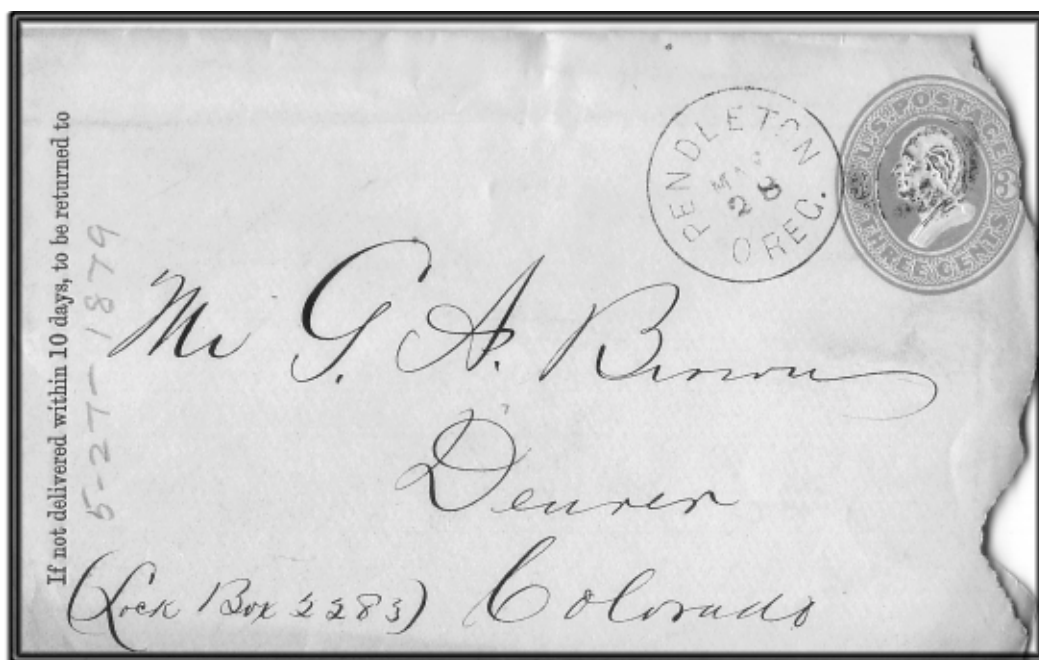 If not delivered within 10 days, to be returned to
5-27-1879
PENDLETON
MAY
28
OREG.
U.S. POSTAGE
3 3
THREE CENTS
Mr G. A. Brown
Denver
(Lock Box 2283) Colorado